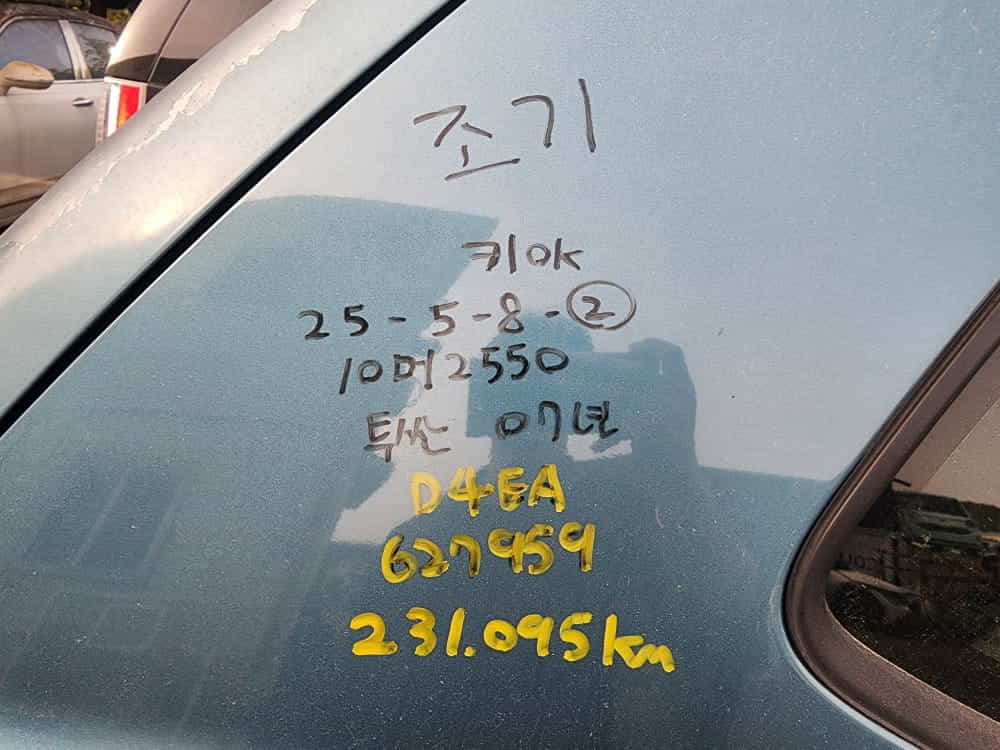 조기
키OK
25-5-8-②
10머2550
투싼 07년
D4EA
627959
231.095km